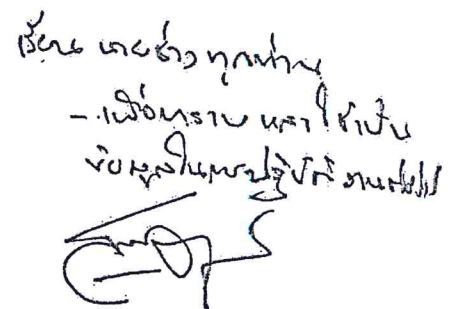 เรียน นายช่าง ทุกท่าน
- เพื่อทราบ และใช้เป็น
ข้อมูลในการปฏิบัติ งานต่อไป